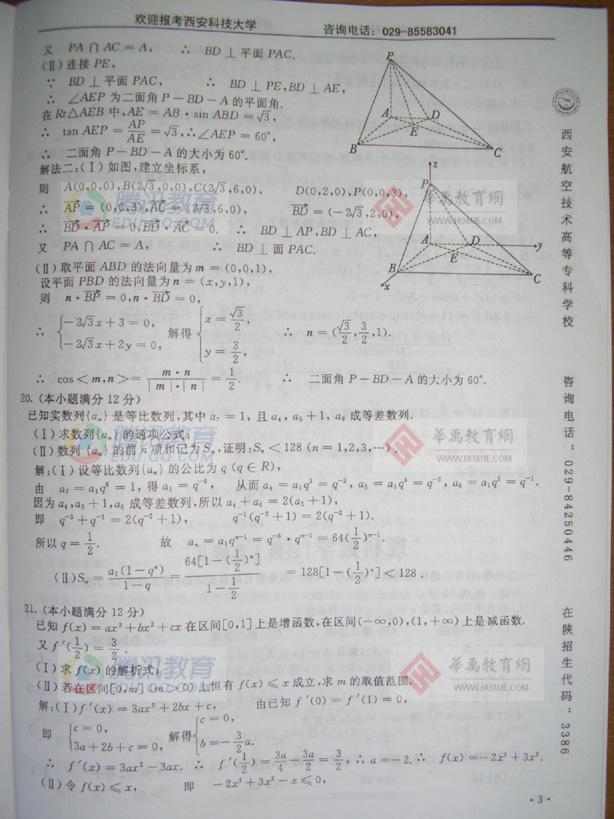 欢迎报考西安科技大学 咨询电话：029-85583041
又 PA∩AC=A, ∴ BD⊥平面 PAC.
(Ⅱ)连接 PE,
∵ BD⊥平面 PAC, ∴ BD⊥PE,BD⊥AE,
∴ ∠AEP 为二面角 P-BD-A 的平面角.
在 Rt△AEB 中,AE=AB·sin ABD=√3,
∴ tan AEP=AP/AE=√3,∴∠AEP=60°,
∴ 二面角 P-BD-A 的大小为 60°.
解法二:(Ⅰ)如图,建立坐标系,
则 A(0,0,0),B(2√3,0,0),C(2√3,6,0), D(0,2,0),P(0,0,3),
∴ AP=(0,0,3),AC=(2√3,6,0), BD=(-2√3,2,0),
∴ BD·AP=0,BD·AC=0. ∴ BD⊥AP,BD⊥AC,
又 PA∩AC=A, ∴ BD⊥面 PAC.
(Ⅱ)取平面 ABD 的法向量为 m=(0,0,1),
设平面 PBD 的法向量为 n=(x,y,1),
则 n·BP=0,n·BD=0,
∴ {-2√3x+3=0, -2√3x+2y=0, 解得 {x=√3/2, y=3/2, ∴ n=(√3/2,3/2,1).
∴ cos<m,n>=m·n/|m|·|n|=1/2. ∴ 二面角 P-BD-A 的大小为 60°.
20.(本小题满分 12 分)
已知实数列{aₙ}是等比数列,其中 a₇=1,且 a₄,a₅+1,a₆ 成等差数列.
(Ⅰ)求数列{aₙ}的通项公式;
(Ⅱ)数列{aₙ}的前 n 项和记为 Sₙ,证明:Sₙ<128(n=1,2,3,…).
解:(Ⅰ)设等比数列{aₙ}的公比为 q(q∈R),
由 a₇=a₁q⁶=1,得 a₁=q⁻⁶, 从而 a₄=a₁q³=q⁻³,a₅=a₁q⁴=q⁻²,a₆=a₁q⁵=q⁻¹.
因为 a₄,a₅+1,a₆ 成等差数列,所以 a₄+a₆=2(a₅+1),
即 q⁻³+q⁻¹=2(q⁻²+1), q⁻¹(q⁻²+1)=2(q⁻²+1).
所以 q=1/2. 故 aₙ=a₁qⁿ⁻¹=q⁻⁶·qⁿ⁻¹=64(1/2)ⁿ⁻¹.
(Ⅱ)Sₙ=a₁(1-qⁿ)/1-q=64[1-(1/2)ⁿ]/1-1/2=128[1-(1/2)ⁿ]<128.
21.(本小题满分 12 分)
已知 f(x)=ax³+bx²+cx 在区间[0,1]上是增函数,在区间(-∞,0),(1,+∞)上是减函数.
又 f′(1/2)=3/2.
(Ⅰ)求 f(x)的解析式;
(Ⅱ)若在区间[0,m](m>0)上恒有 f(x)≤x 成立,求 m 的取值范围.
解:(Ⅰ)f′(x)=3ax²+2bx+c, 由已知 f′(0)=f′(1)=0,
即 {c=0, 3a+2b+c=0, 解得 {c=0, b=-3/2a.
∴ f′(x)=3ax²-3ax.∴ f′(1/2)=3a/4-3a/2=3/2,∴ a=-2.∴ f(x)=-2x³+3x².
(Ⅱ)令 f(x)≤x, 即 -2x³+3x²-x≤0,
·3·
P
A
D
E
B
C
z
P
A
D
y
E
B
x
C
西安航空技术高等专科学校
咨询电话：029-84250446
在陕招生代码：3386
腾讯教育
華禹教育網
WWW.HUAUE.COM
華禹教育網
WWW.HUAUE.COM
腾讯教育
腾讯教育
華禹教育網
WWW.HUAUE.COM